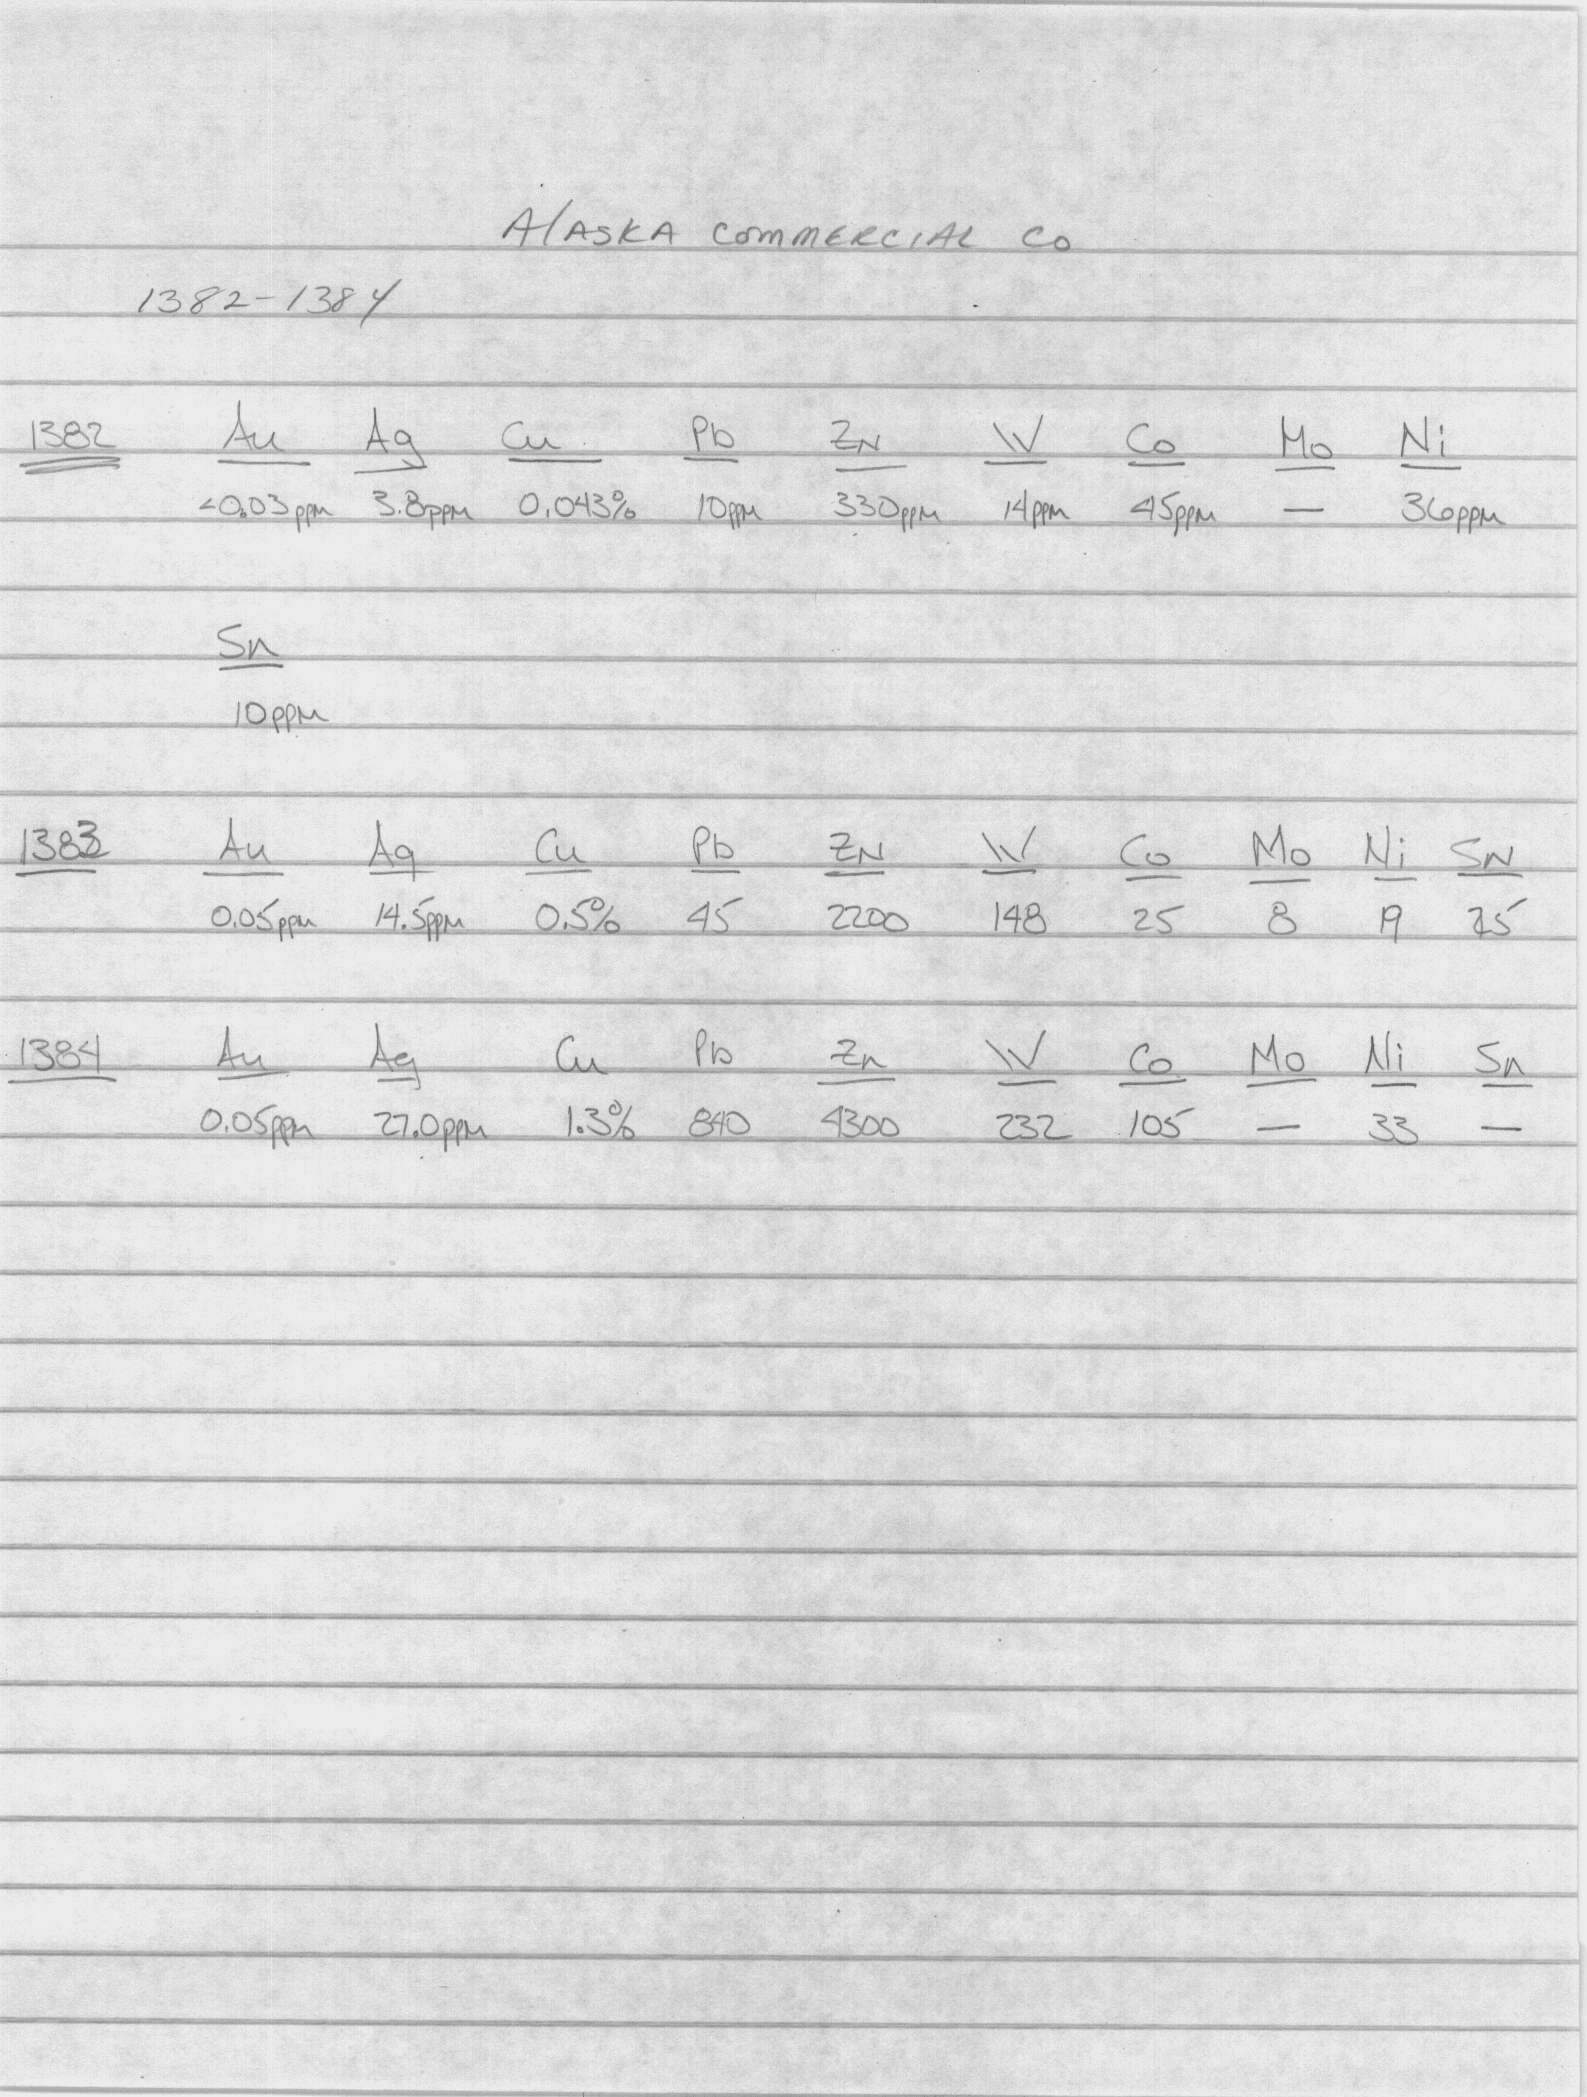 ALASKA COMMERCIAL CO
1382-1384
1382 Au Ag Cu Pb ZN W Co Mo Ni
<0.03ppm 3.8ppm 0.043% 10ppm 330ppm 14ppm 45ppm — 36ppm
Sn
10ppm
1383 Au Ag Cu Pb ZN W Co Mo Ni SN
0.05ppm 14.5ppm 0.5% 45 2200 148 25 8 19
1384 Au Ag Cu Pb Zn W Co Mo Ni Sn
0.05ppm 27.0ppm 1.3% 840 4300 232 105 — 33 —